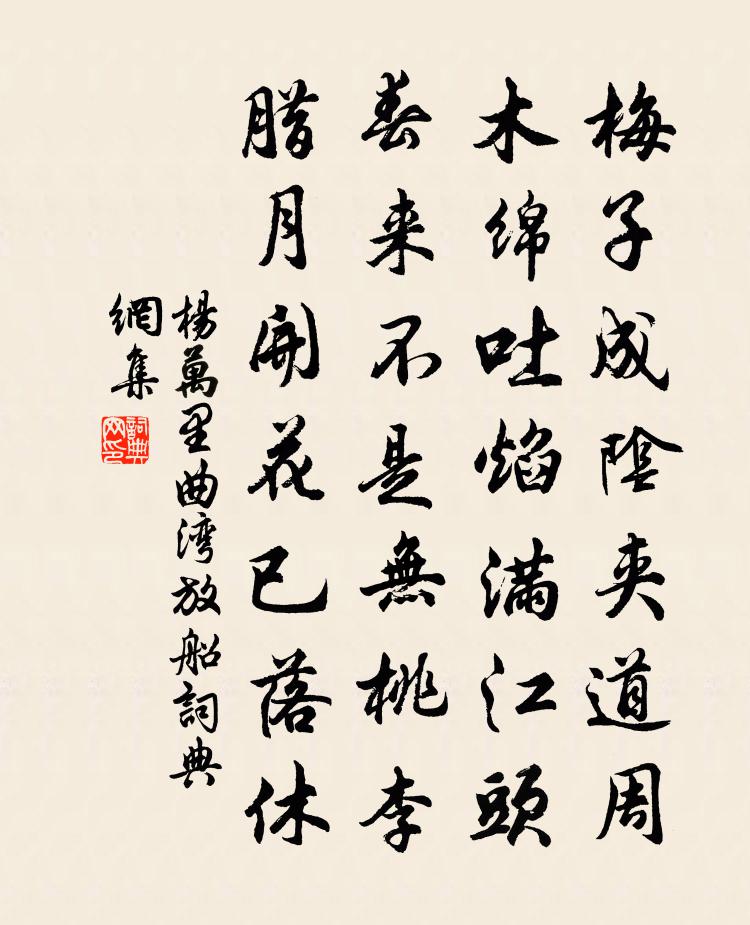 梅子成陰夾道周
木綿吐焰滿江頭
春来不是無桃李
腊月開花已落休
楊萬里曲湾放船詞典
網集
詞典網印